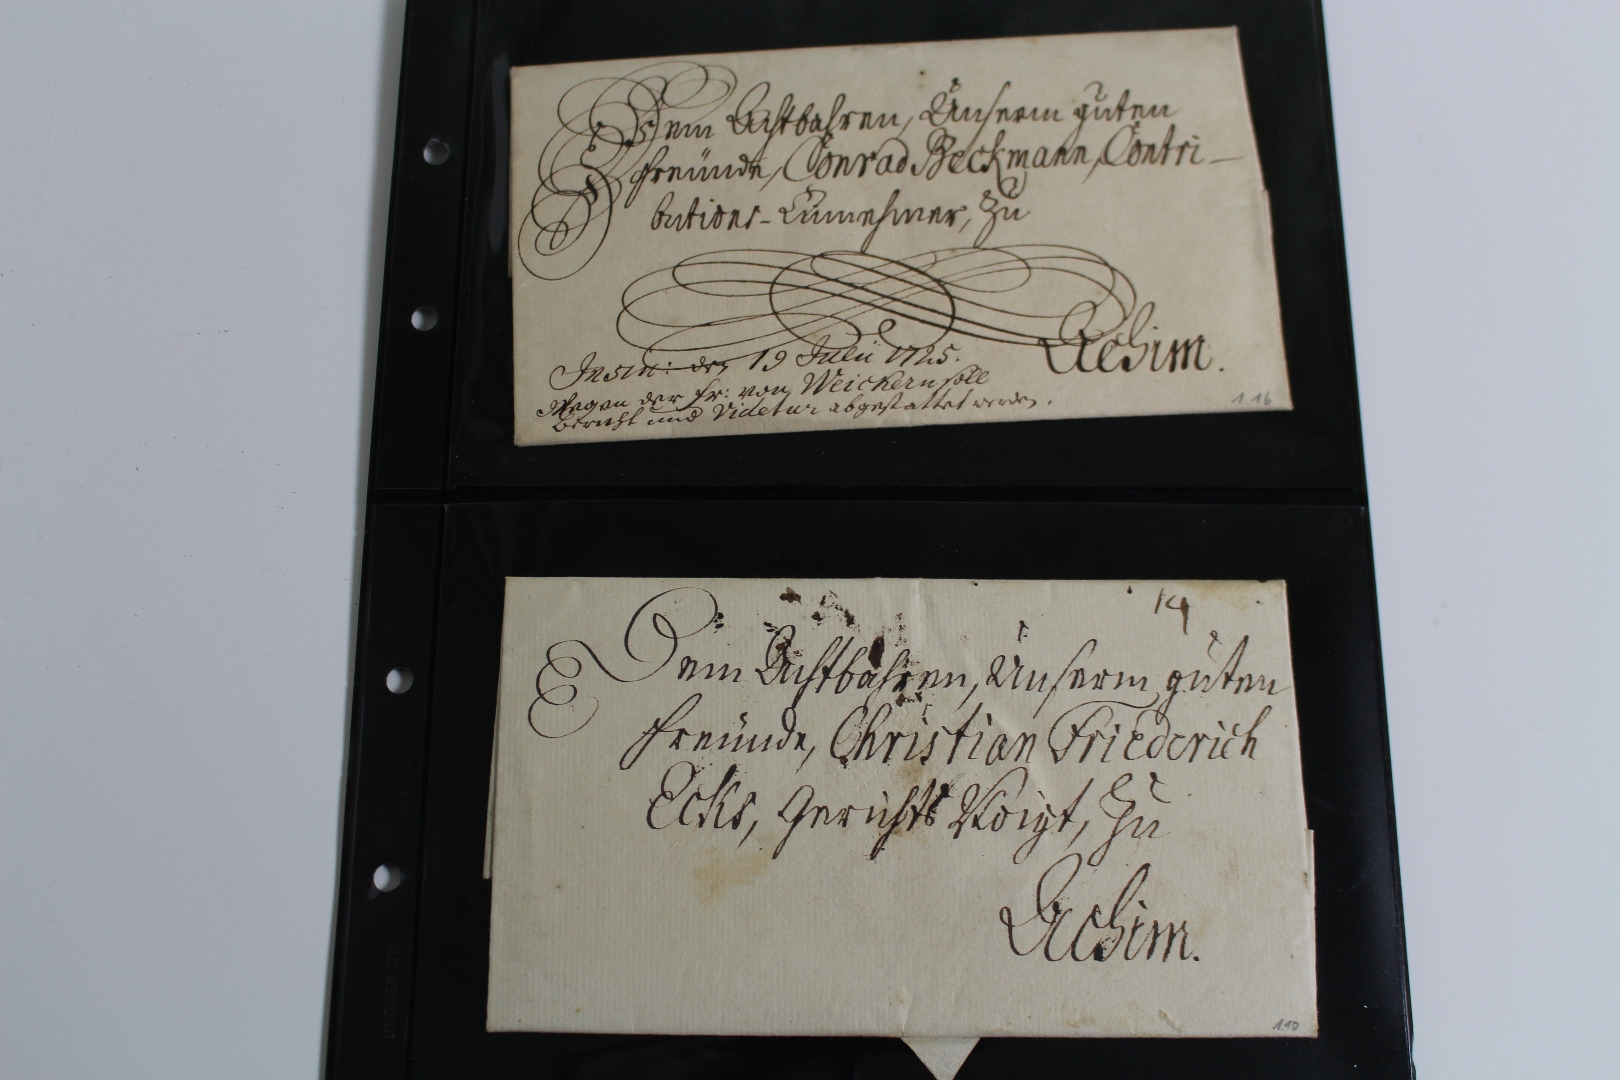 Dem Achtbahren, Unserm guten
Freunde, Conrad Beckmann, Contri-
butions-Einnehmer, zu
Achim.
den 19 Julii 1725.
Wegen der Fr: von Weickern soll
Bericht und Videtur abgestattet werden.
1.16
14
Dem Achtbahren, Unserm guten
Freunde, Christian Friederich
Ecks, Gerichts Voigt, zu
Achim.
1.10